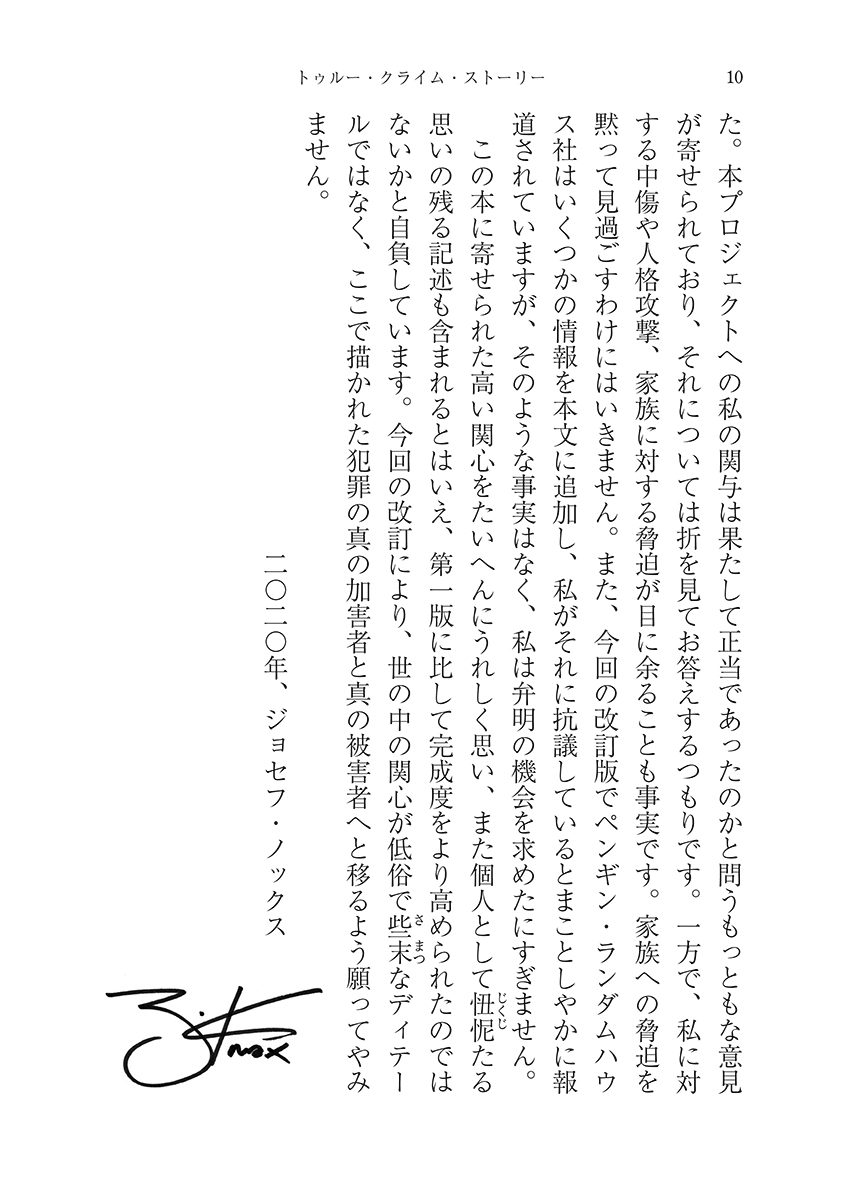 トゥルー・クライム・ストーリー
10
た。本プロジェクトへの私の関与は果たして正当であったのかと問うもっともな意見
が寄せられており、それについては折を見てお答えするつもりです。一方で、私に対
する中傷や人格攻撃、家族に対する脅迫が目に余ることも事実です。家族への脅迫を
黙って見過ごすわけにはいきません。また、今回の改訂版でペンギン・ランダムハウ
ス社はいくつかの情報を本文に追加し、私がそれに抗議しているとまことしやかに報
道されていますが、そのような事実はなく、私は弁明の機会を求めたにすぎません。
　この本に寄せられた高い関心をたいへんにうれしく思い、また個人として忸怩じくじたる
思いの残る記述も含まれるとはいえ、第一版に比して完成度をより高められたのでは
ないかと自負しています。今回の改訂により、世の中の関心が低俗で些末さまつなディテー
ルではなく、ここで描かれた犯罪の真の加害者と真の被害者へと移るよう願ってやみ
ません。
二〇二〇年、ジョセフ・ノックス
J. Knox